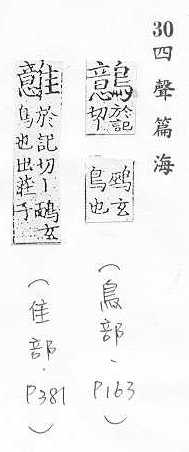 30 四聲篇海
鷾 於記切 鴯玄鳥也
(鳥部.P163)
於記切丨鴯玄鳥也出莊子
(隹部.P381)